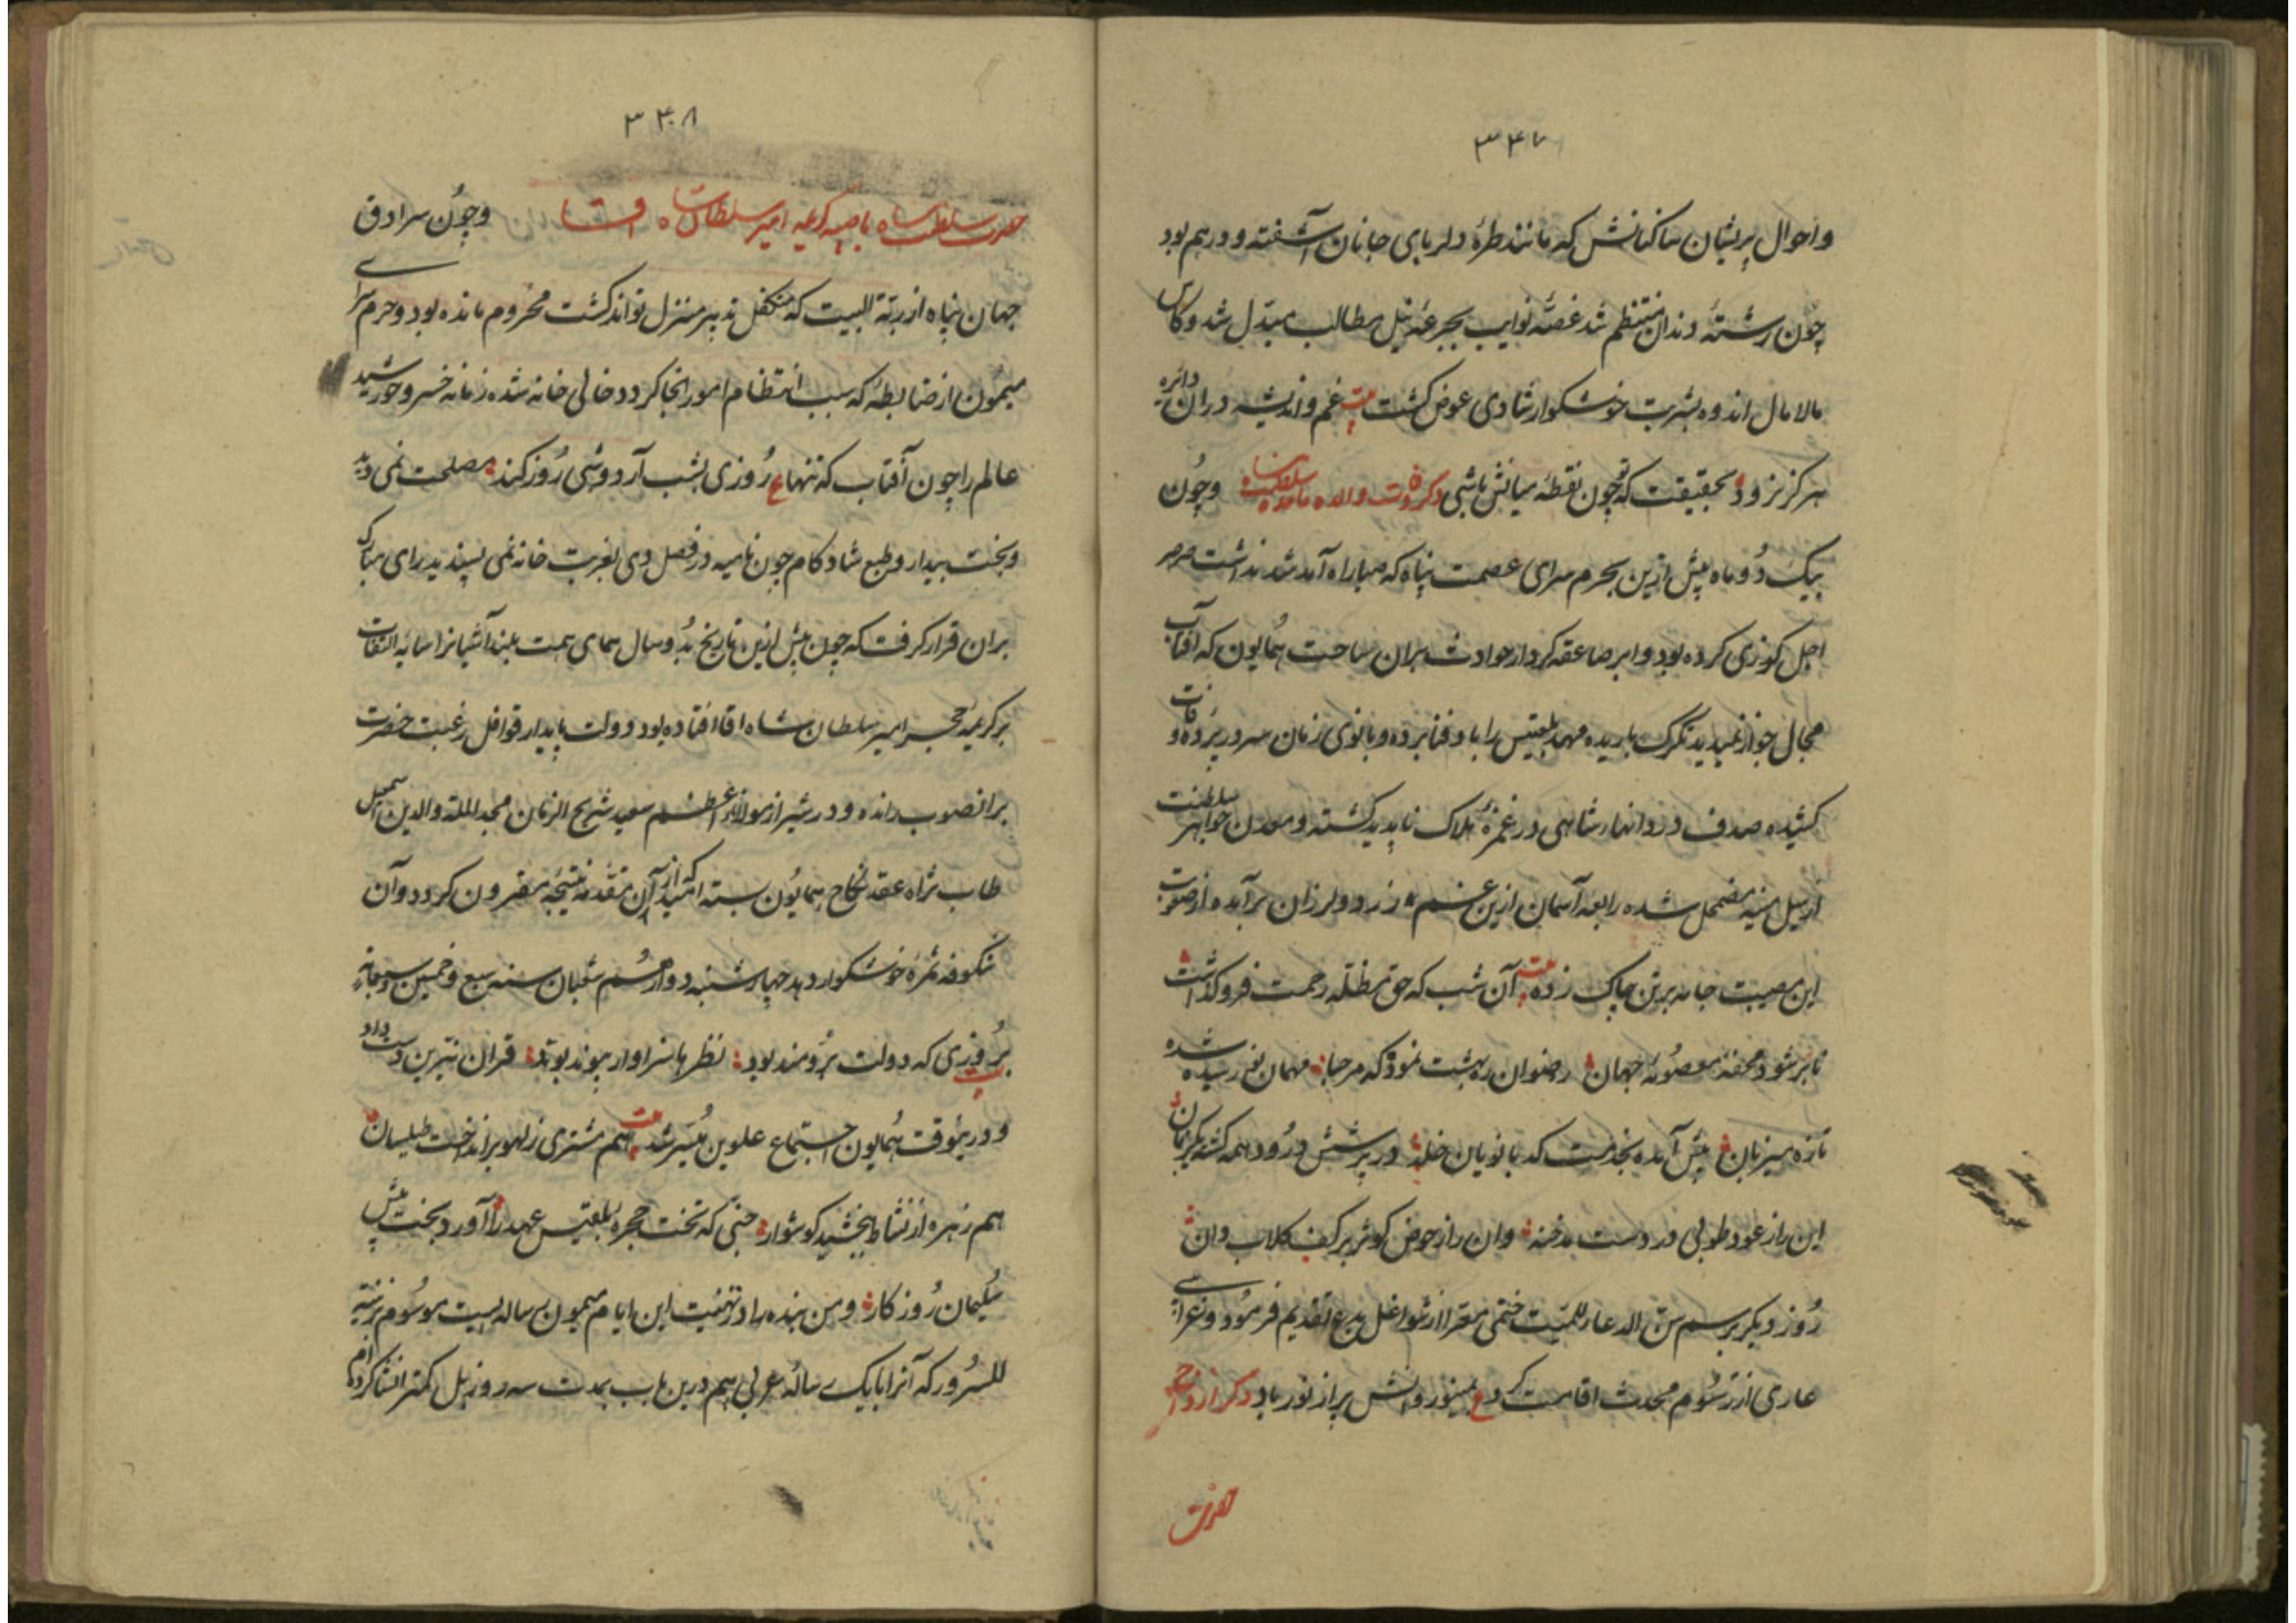 ۳۴۷
و احوال پریشان ساکنانش که مانند طرهٔ دلربای جانان آشفته و درهم بود
چون رشتهٔ دندان منتظم شد غصهٔ نوایب بجرعهٔ نیل مطالب مبدل شد و کاس
مالامال اندوه بشربت خوشکوار شادی عوض کشت بیت غم و اندیشه دران دایره
هرکز نرود بحقیقت که تو چون نقطه میانش باشی ذکر وفات والده و چون
بیک دو ماه پیش ازین بحرم سرای عصمت پناه که صبا راه آمد شد نداشت صرصر
اجل کوزی کرده بود و ابر صاعقه کردار حوادث بران ساحت همایون که آفتاب
مجال جواز نمیدید تکرک باریده مهد بلقیس را باد فنا برده و بانوی زمان سر در پرده وفات
کشیده صدف دردانهاء شاهی در غمرهٔ هلاک ناپدید کشته و معدن جواهر سلطنت
از سیل منیه مضمحل شده رابعه آسمان ازین غم زرد و لرزان برآمده از صعوبت
این مصیبت جامه بر تن چاک زده بیت آن شب که حق مظله رحمت فروکذاشت
تا بر شود محفه معصومه جهان رضوان ره بهشت نمود که مرحبا مهمان نو رسیده شده
تازه میزبان پیش آمده بخدمت کدبانویان خلد در پرسش و درود همه کشته یکزبان
این را ز عود طوبی در دست مدخنه وان را ز حوض کوثر بر کف کلاب دان
روز دیکر برسم سن الدعا للمیت ختمی معرا از شواغل بدع تقدیم فرمود و عزائی
عاری از رسوم محدث اقامت کرد ع مینو روانش پر از نور باد ذکر ازدواج
حضرت
۳۴۸
حضرت سلطنت پناه با صبیه کریمه امیر سلطان شاه و چون سرادق
جهان پناه از ربة البیت که متکفل تدبیر منزل تواند کشت محروم مانده بود و حرم سرای
میمون از ضابطهٔ که سبب انتظام امور انجا کردد خالی خانه شده زمانه خسرو خورشید
عالم را چون آفتاب که تنها ع روزی بشب آرد و شبی روز کند مصلحت نمی دید
و بخت بیدار و طبع شادکام چون نامیه در فصل دی بغربت خانه نمی پسندید رای مبارک
بران قرار کرفت که چون پیش ازین تاریخ بدو سال همای همت بلند آشیانرا سایه التفات
بر کریمهٔ حجر امیر سلطان شاه افتاده بود و دولت پایدار قوافل رغبت حضرت
بر انصوب رانده و در شیراز مولانا اعظم سعید شریح الزمان مجد الملة والدین اسمعیل
طاب ثراه عقد نکاح همایون بسته امید که از آن مقدمه نتیجه مقرون کردد و آن
شکوفه ثمرهٔ خوشکوار دهد چهارشنبه دوازدهم شعبان سنه سبع و خمسین و سبعمایه
بیت بروزی که دولت برومند بود نظرها سزاوار پیوند بود قران نیرین دست داد
و در بموقت همایون اجتماع علویین میسر شد بیت هم مشتری ز لهو برانداخت طیلسان
هم زهره از نشاط ببخشید کوشوار حتی که تخت حجره بلقیس عهد را آورد بخت پیش
سلیمان روزکار و من بنده را در تهنیت این ایام میمون رساله ایست موسوم بزینة
للسرور که آنرا با یک رسالهٔ عربی هم درین باب بمدت سه روز بل کمتر انشا کرده ام